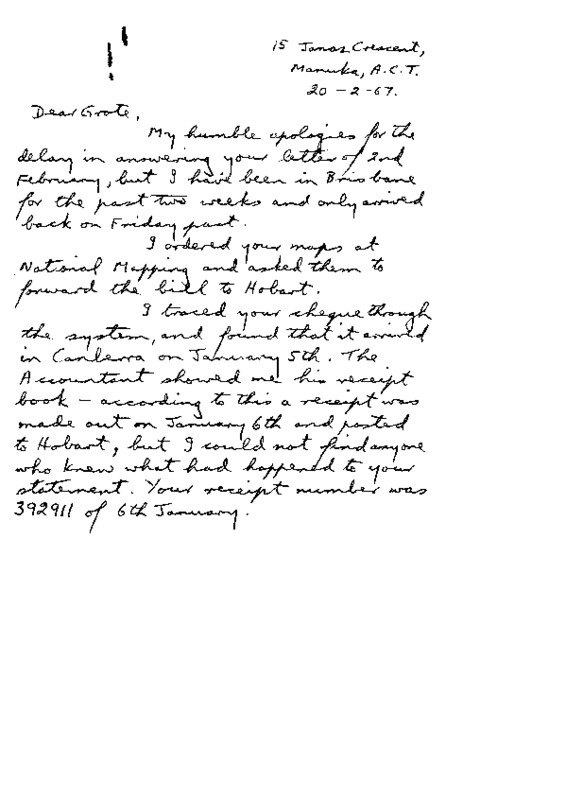 15 Jansz Crescent,
Manuka, A.C.T.
20-2-67.
Dear Grote,
My humble apologies for the
delay in answering your letter of 2nd
February, but I have been in Brisbane
for the past two weeks and only arrived
back on Friday past.
I ordered your maps at
National Mapping and asked them to
forward the bill to Hobart.
I traced your cheque through
the system, and found that it arrived
in Canberra on January 5th. The
Accountant showed me his receipt
book - according to this a receipt was
made out on January 6th and posted
to Hobart, but I could not find anyone
who knew what had happened to your
statement. Your receipt number was
392911 of 6th January.